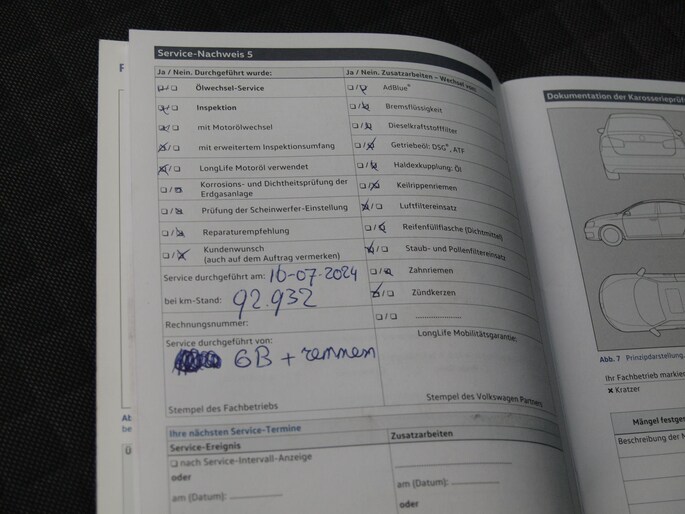 Service-Nachweis 5
Ja / Nein. Durchgeführt wurde:
Ölwechsel-Service
Inspektion
mit Motorölwechsel
mit erweitertem Inspektionsumfang
LongLife Motoröl verwendet
Korrosions- und Dichtheitsprüfung der
Erdgasanlage
Prüfung der Scheinwerfer-Einstellung
Reparaturempfehlung
Kundenwunsch
(auch auf dem Auftrag vermerken)
Service durchgeführt am: 16-07-2024
bei km-Stand: 92.932
Rechnungsnummer:
Service durchgeführt von:
GB + remmen
Stempel des Fachbetriebs
Ja / Nein. Zusatzarbeiten – Wechsel von:
AdBlue®
Bremsflüssigkeit
Dieselkraftstofffilter
Getriebeöl: DSG®, ATF
Haldexkupplung: Öl
Keilrippenriemen
Luftfiltereinsatz
Reifenfüllflasche (Dichtmittel)
Staub- und Pollenfiltereinsatz
Zahnriemen
Zündkerzen
LongLife Mobilitätsgarantie:
Stempel des Volkswagen Partners
Ihre nächsten Service-Termine
Service-Ereignis
nach Service-Intervall-Anzeige
oder
am (Datum):
Zusatzarbeiten
am (Datum):
oder
Dokumentation der Karosserieprüf
Abb. 7 Prinzipdarstellung.
Ihr Fachbetrieb markier
Kratzer
Mängel festges
Beschreibung der M